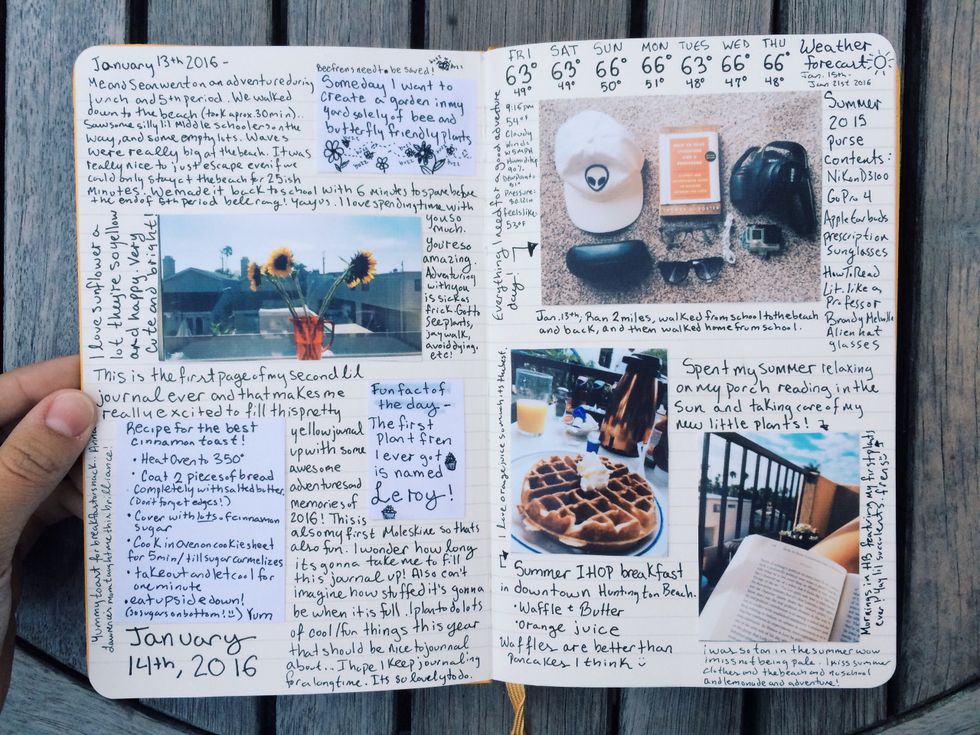 January 13th 2016 -
Me and Sean went on an adventure during
lunch and 5th period. We walked
down to the beach (took aprox. 30min).
Saw some silly lil middle schoolers on the
way, and some empty lots. Waves
were really big at the beach. It was
really nice to just escape even if we
could only stay at the beach for 25ish
minutes! We made it back to school with 6 minutes to spare before
the end of 5th period bell rang! Yay us. I love spending time with
you so
much.
You're so
amazing.
Adventuring
with you
is sick as
frick. Got to
see plants,
jay walk,
avoid dying.
etc!
Bee frens need to be saved!
Someday I want to
create a garden in my
yard solely of bee and
butterfly friendly plants
I love sunflower a
lot they're so yellow
and happy. Very
cute and bright!
This is the first page of my second lil
journal ever and that makes me
really excited to fill this pretty
yellow journal
up with some
awesome
adventures and
memories of
2016! This is
also my first Moleskine so thats
also fun. I wonder how long
its gonna take me to fill
this journal up! Also can't
imagine how stuffed it's gonna
be when it is full. I plan to do lots
of cool/fun things this year
that should be nice to journal
about.. I hope I keep journaling
for a long time. Its so lovely to do.
Fun fact of
the day -
The first
plant fren
I ever got
is named
Leroy!
Recipe for the best
cinnamon toast!
• Heat Oven to 350°
• Coat 2 pieces of bread
completely with salted butter.
(Don't forget edges!)
• Cover with lots of cinnamon
sugar
• Cook in oven on cookie sheet
for 5min/till sugar carmelizes
• take out and let cool for
one minute
• eat upside down!
(so sugars on bottom! :)) Yum
Yummy toast for breakfast or snack.. Anna
lawrences mom taught me this brilliance!
January
14th, 2016
FRI SAT SUN MON TUES WED THU
63° 63° 66° 66° 63° 66° 66°
49° 49° 50° 51° 48° 47° 48°
Weather
forecast
Jan. 15th -
Jan 21st 2016
9:16pm
54°F
Cloudy
Winds:
WSMPH
Humidity
90%
Dew Point:
51°
Pressure:
30.12in
feels like
53°F
Everything I need for a good adventure
day!
Summer
2015
porse
contents:
Nikon D3100
GoPro 4
Apple earbuds
prescription
Sunglasses
How To Read
Lit. like a
Professor
Brandy Melville
Alien hat
glasses
Jan. 13th, Ran 2 miles, walked from school to the beach
and back, and then walked home from school.
I love orange juice so much its the best.
Summer IHOP breakfast
in downtown Huntington Beach.
• Waffle + Butter
• orange juice
Waffles are better than
pancakes I think :)
Spent my summer relaxing
on my porch reading in the
Sun and taking care of my
new little plants!
Mornings in HB featuring my first plants
ever. Yay lil succulents frens :)
i was so tan in the summer wow
i miss not being pale. I miss summer
clothes and the beach and no school
and lemonade and adventure!